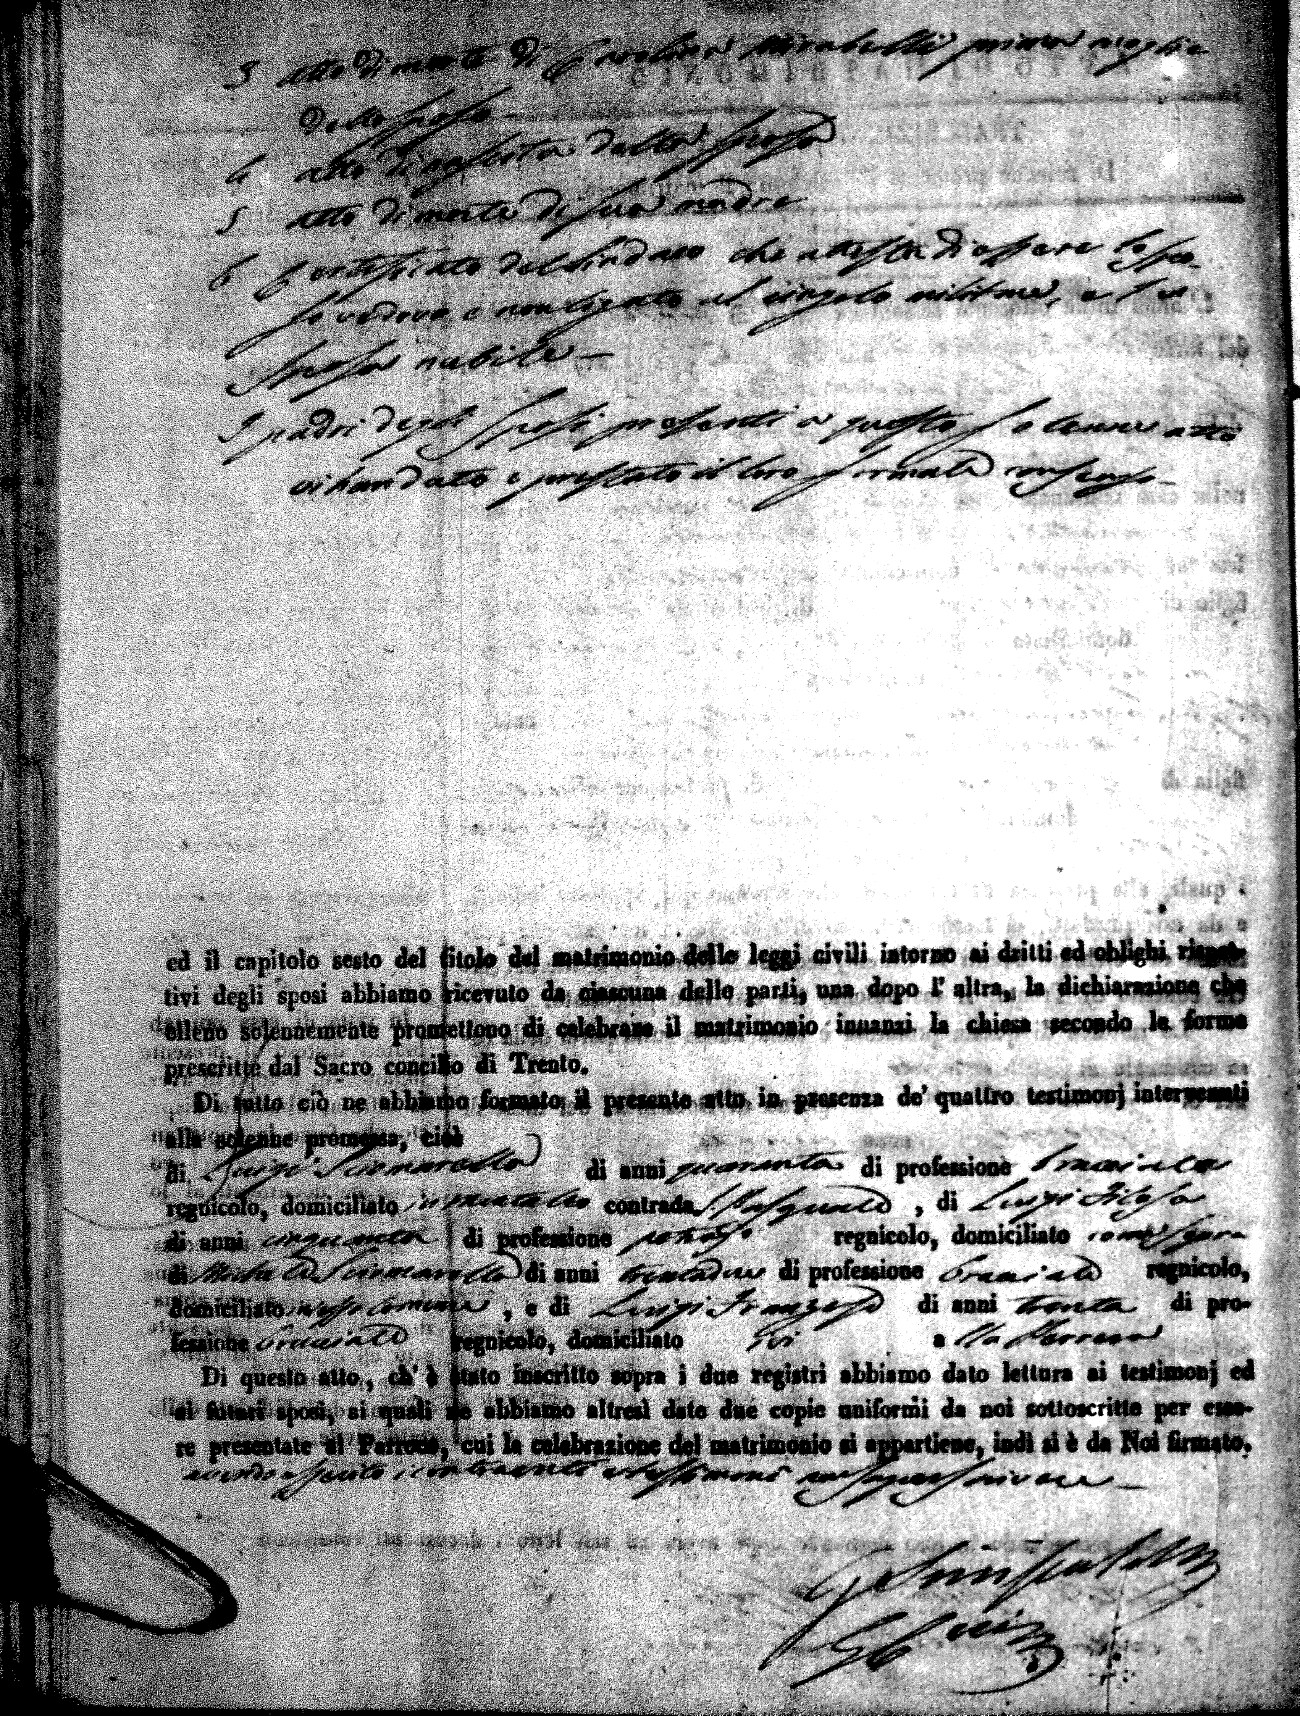 3 Atto di morte di Carolina Mirabelli prima moglie
dello sposo
4 atto di nascita della sposa
5 atto di morte di sua madre
6 Certificato del Sindaco che attesta di essere lo spo-
so vedovo e non ligato al cingolo militare, e la
sposa nubile —
I padri degli sposi presenti a questo solenne atto
vi han dato e prestato il loro formale consenso -
ed il capitolo sesto del titolo del matrimonio delle leggi civili intorno ai dritti ed oblighi rispet-
tivi degli sposi abbiamo ricevuto da ciascuna delle parti, una dopo l' altra, la dichiarazione che
elleno solennemente promettono di celebrare il matrimonio innanzi la chiesa secondo le forme
prescritte dal Sacro concilio di Trento.
Di tutto ciò ne abbiamo formato il presente atto in presenza de' quattro testimonj intervenuti
alla solenne promessa, cioè
di Luigi di anni quaranta di professione bracciale
regnicolo, domiciliato contrada S. Pasquale , di Luigi Filosa
di anni cinquanta di professione regnicolo, domiciliato come sopra
di di anni trentadue di professione bracciale regnicolo,
domiciliato in esso comune , e di Luigi Franzese di anni trenta di pro-
fessione bracciale regnicolo, domiciliato ivi a
Di questo atto, ch' è stato inscritto sopra i due registri abbiamo dato lettura ai testimonj ed
ai futuri sposi, ai quali ne abbiamo altresì date due copie uniformi da noi sottoscritte per esse-
re presentate al Parroco, cui la celebrazione del matrimonio si appartiene, indi si è da Noi firmato,
avendo asserito i contraenti e testimoni non saper scrivere —